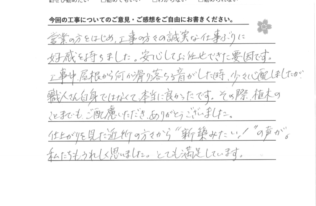 今回の工事についてのご意見・ご感想をご自由にお書きください。
営業の方をはじめ、工事の方々の誠実な仕事ぶりに
好感を持ちました。安心してお任せできた要因です。
工事中屋根から何か滑り落ちる音がした時、少々心配しましたが
職人さん自身ではなくて本当に良かったです。その際、植木の
ことまでもご配慮いただきありがとうございました。
仕上がりを見た近所の方々から"新築みたい!"の声が。
私たちもうれしく思いました。とても満足しています。